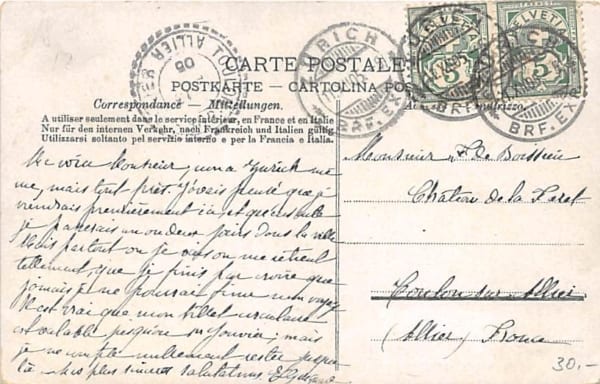 CARTE POSTALE
POSTKARTE - CARTOLINA POS
Correspondance - Mitteilungen.
A utiliser seulement dans le service intérieur, en France et en Italie
Nur für den internen Verkehr, nach Frankreich und Italien gültig.
Utilizzarsi soltanto pel servizio interno e per la Francia e Italia.
HELVETIA
5
HELVETIA
5
ZÜRICH
BRF. EXP.
ZÜRICH
BRF. EXP.
BRF. EXP.
ALLIER
08
Monsieur, Zurich me
me, mais tout prêt. J'avais pensé que je
viendrais premièrement ici, et qu'ensuite
je passerais un ou deux jours dans la ville
Mais partout où je vais on me retient
tellement, que je finis par croire que
jamais je ne pourrai finir mon voyage
Il est vrai que mon billet circulaire
est valable jusqu'en Janvier; mais
je ne compte nullement rester jusque
là. Mes plus sincères salutations
Monsieur de Boissieu
Château de la Foret
Toulon sur Allier
(Allier) France
30.-